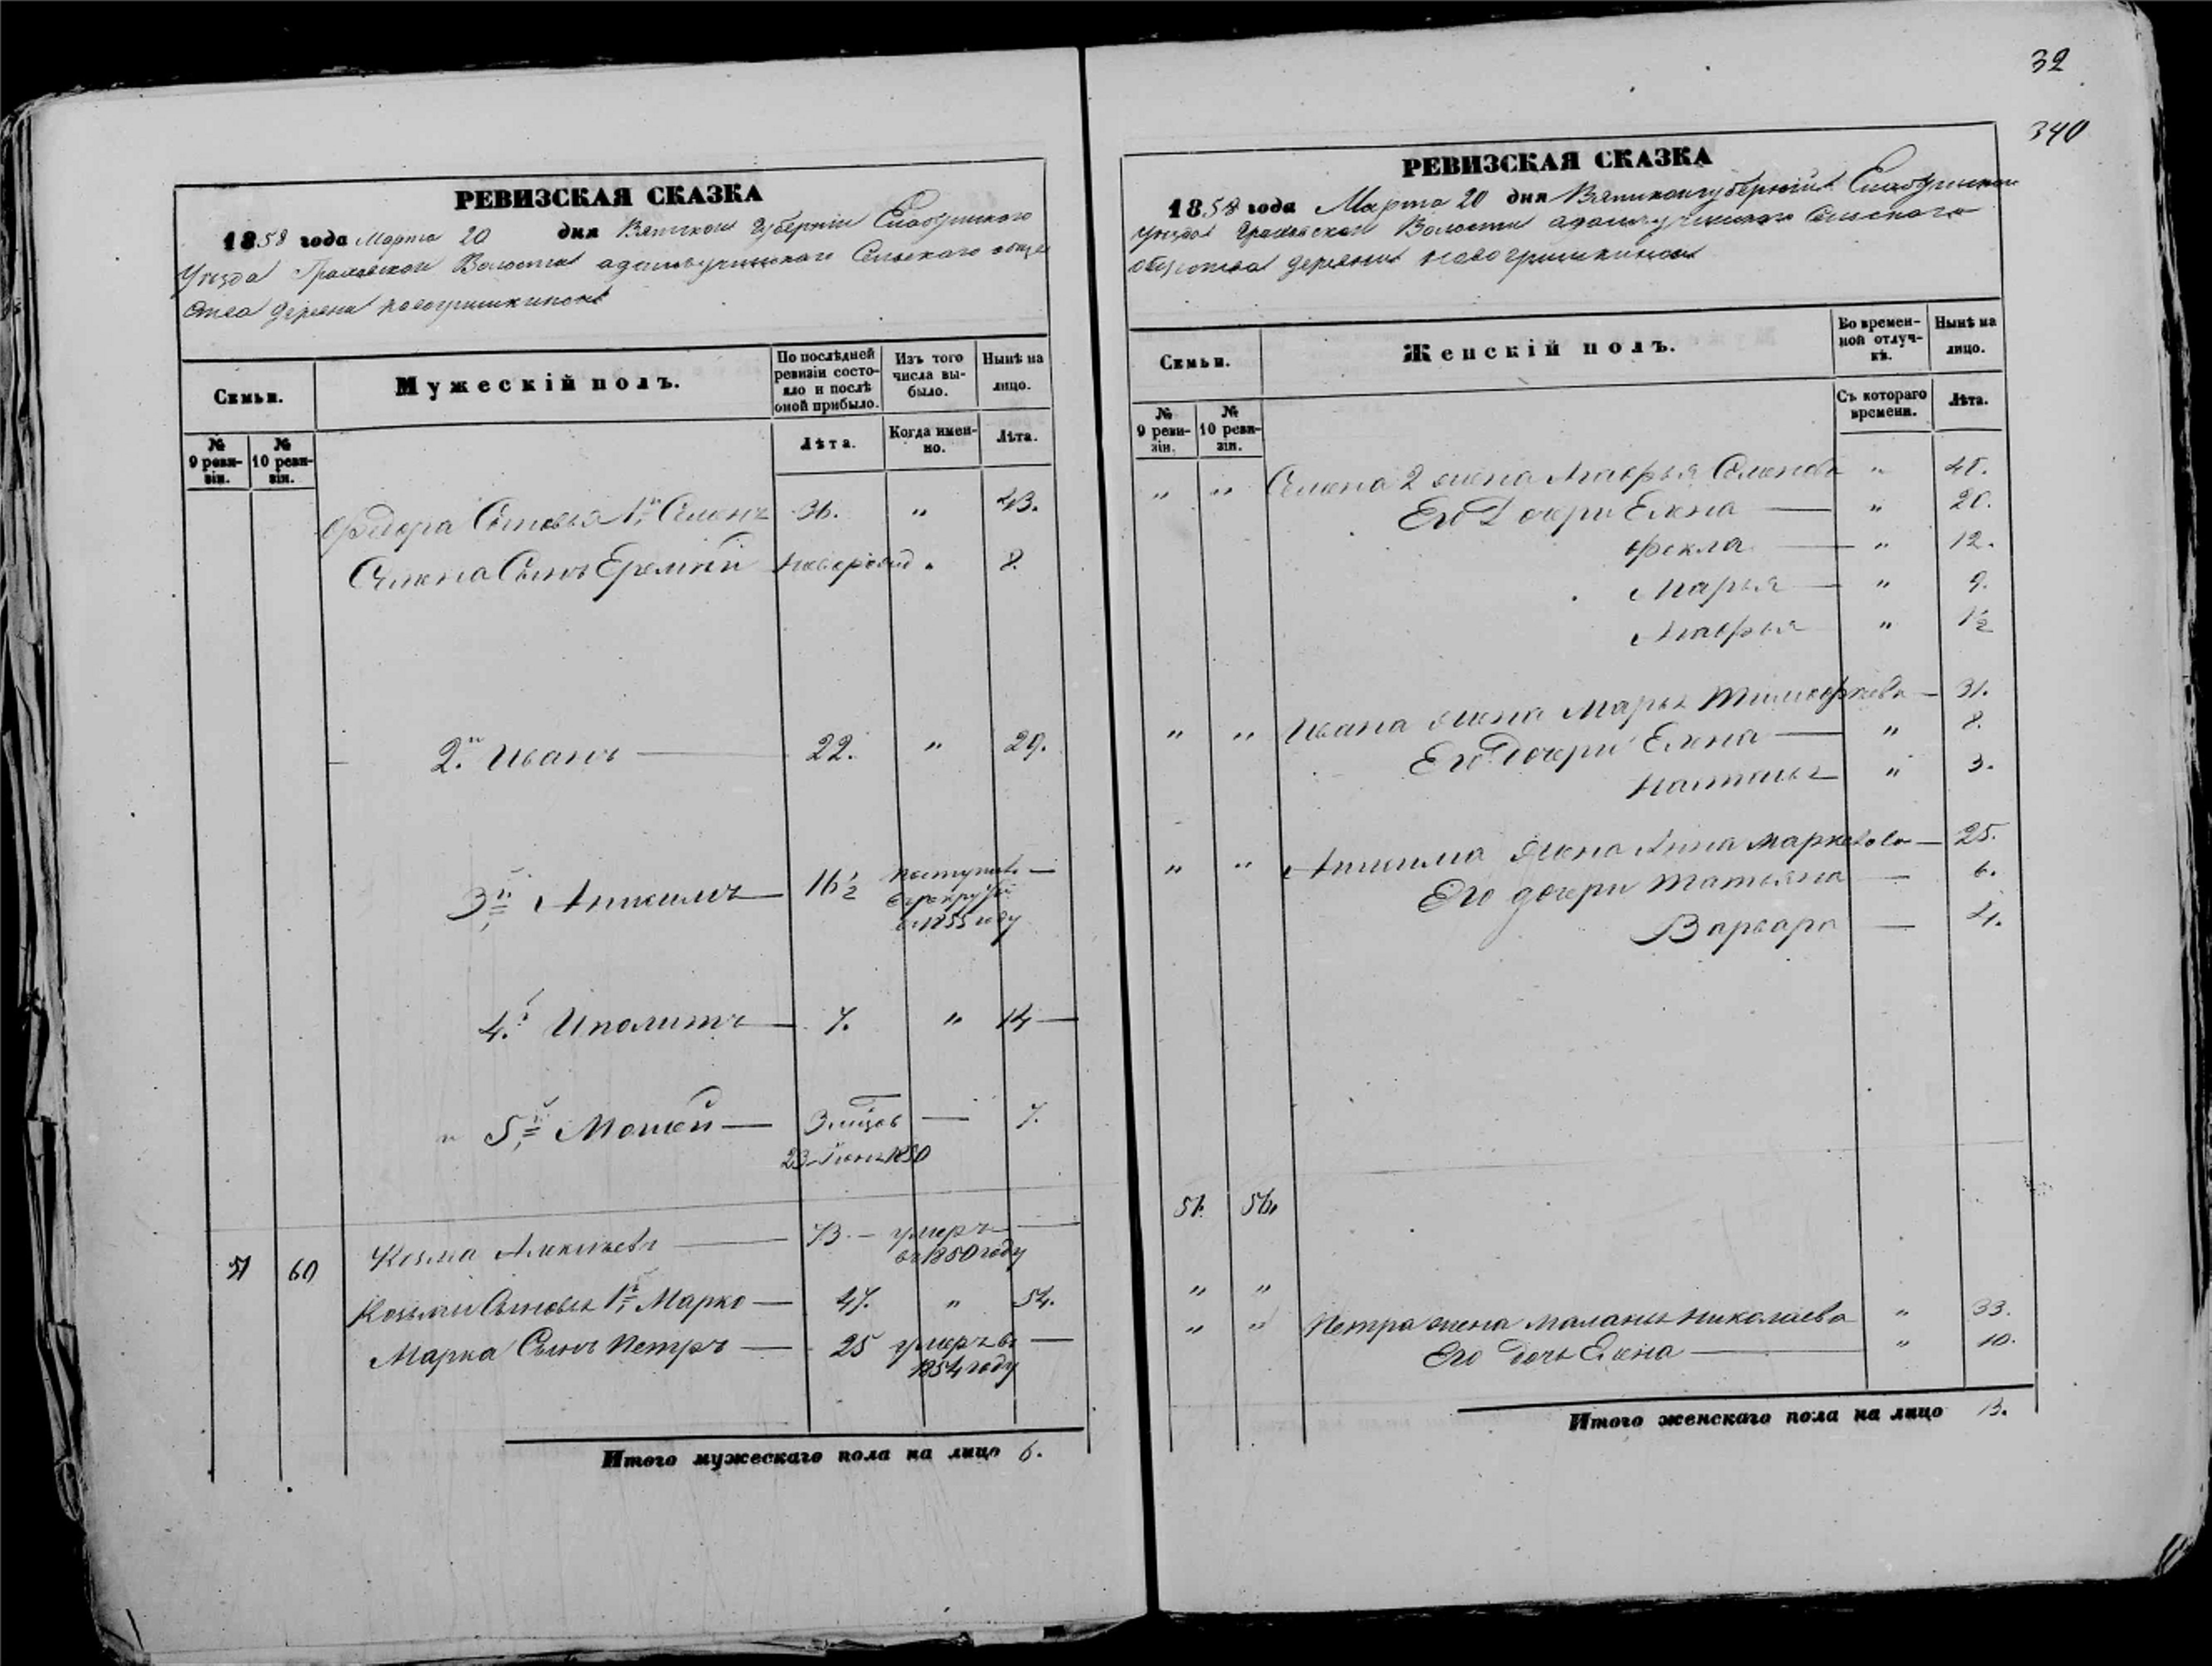 32
340
РЕВИЗСКАЯ СКАЗКА
1858 года Марта 20 дня Вятской Губернии Елабужского
Уезда Граховской Волости адамъучинскаго Сельскаго обще
ства деревни новогришкиной
Семьи.
Мужескій полъ.
По послѣдней ревизіи состояло и послѣ оной прибыло.
Изъ того числа выбыло.
Нынѣ на лицо.
№ 9 ревизіи.
№ 10 ревизіи.
Лѣта.
Когда именно.
Лѣта.
Федора Сыновья 1й Семенъ 36. " 43.
Семена Сынъ Еремей новорожд " 8.
2й Иванъ 22. " 29.
3й Анисимъ 16½ поступилъ
в рекруты
в 1855 году
4й Иполитъ 7. " 14
5й Мосей 7.
23 Июня 1850
51 60 Козма Алексѣевъ 73 умеръ
въ 1850 году
Козьмы Сыновья 1й Марко 47. " 54.
Марка Сынъ Петръ 25 умеръ въ
1854 году
Итого мужескаго пола на лицо 6.
РЕВИЗСКАЯ СКАЗКА
1858 года Марта 20 дня Вятской губерніи Елабужскаго
уезда Граховской Волости адамъучинскаго Сельскаго
общества деревни новогришкиной
Семьи.
Женскій полъ.
Во временной отлучкѣ.
Нынѣ на лицо.
№ 9 ревизіи.
№ 10 ревизіи.
Съ котораго времени.
Лѣта.
" " Семена 2 жена Марфья Семенова " 45.
Его Дочери Елена " 20.
Фекла " 12.
Марья " 9.
Марфья " 1½
" " Ивана жена Марья Тимофеева 31.
Его Дочери Елена " 8.
Наталья " 3.
" " Анисима жена Анна Маркелова 25.
Его дочери Татьяна 6.
Варвара 4.
51. 56.
" "
" " Петра жена Маланья Николаева " 33.
Его дочь Елена " 10.
Итого женскаго пола на лицо 13.